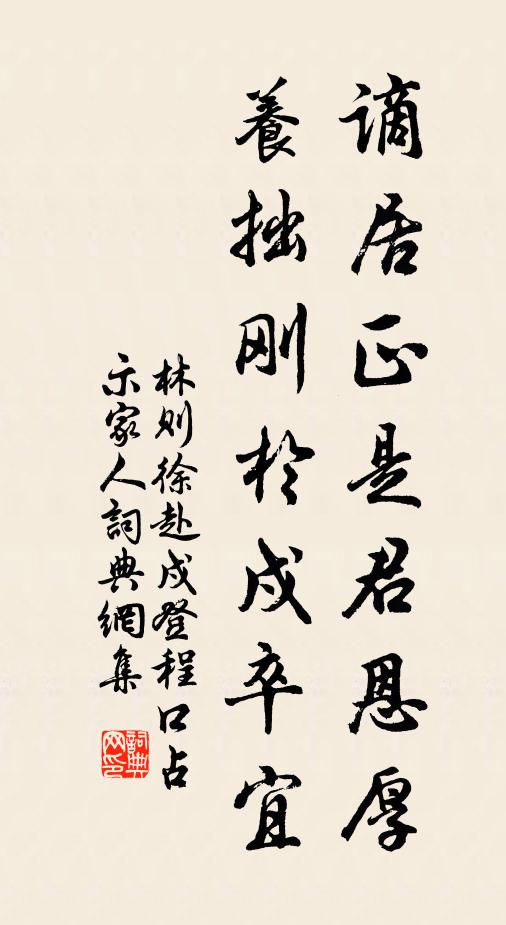 謫居正是君恩厚
養拙刚於戍卒宜
林则徐赴戍登程口占
示家人詞典網集
詞典
网印